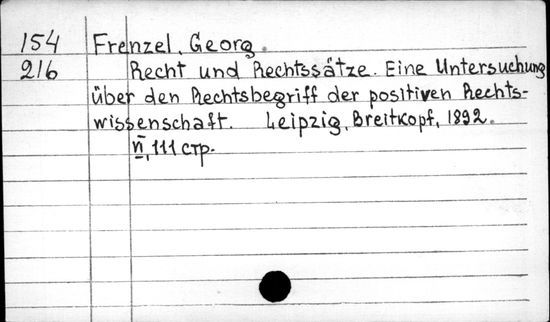 154 Frenzel, Georg.
216 Recht und Rechtssätze. Eine Untersuchung
über den Rechtsbegriff der positiven Rechts-
wissenschaft. Leipzig, Breitkopf, 1892.
II, 111 стр.